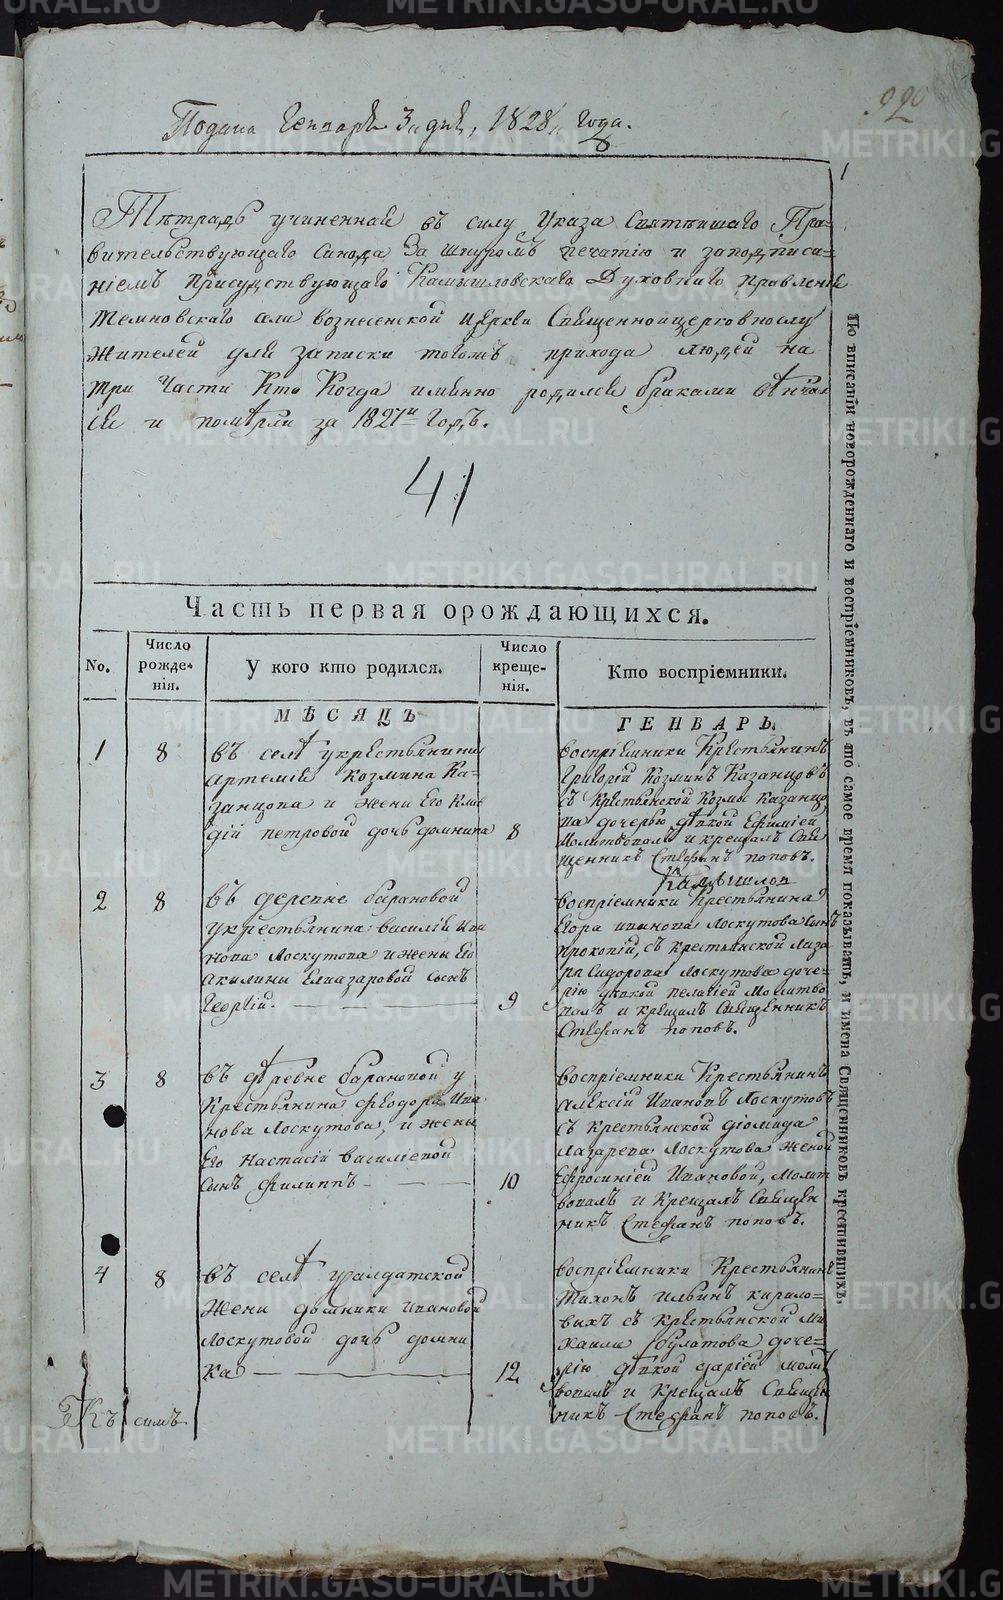 990
Подана Генваря 3го дня, 1828го года.
1
Тѣтрадь учиненная въ силу Указа Святѣйшаго Пра-
вительствующаго Синода За шнуромъ печатію и заподписа-
ніемъ присудствующаго Камышловскаго Духовнаго правленія
Темновскаго села вознесенской церкви Священноцерковнослу
жителей для записки тогожъ прихода людей на
три части Кто Когда имянно родился браками вѣнчал
ся и помѣрли за 1827й годъ.
41
Часть первая орождающихся.
No.
Число рожде-нія.
У кого кто родился.
Число креще-нія.
Кто воспріемники.
МѢСЯЦЪ
ГЕНВАРЬ
1 8
въ селѣ укрестьянина
Артемія Козмина Ка-
занцова и жены Его Клав
дій петровой дочь домника
8
воспріемники Крестьянинъ
Григорій Козминъ Казанцовъ
съ крестьянской Козмы Казанцо
ва дочерью дѣвкой Ефиміей
Молитвовалъ и крещалъ Свя
щенникъ Стефанъ поповъ.
Камышлов
2 8
въ деревне барановой
укрестьянина василія Ива
нова Лоскутова и жены Его
Акилины Елиазаровой сынъ
Георгій.
9
воспріемники Крестьянина
Егора иванова Лоскутова сынъ
прокопій, съ крестьянской Лаза
ря Сидорова Лоскутова доче-
рію дѣвкой пелагіей Молитво
валъ и крещалъ Священникъ
Стефанъ поповъ.
3 8
въ дѣревне барановой у
Крестьянина Феодора Ива
нова Лоскутова, и жены
Его Настасіи василіевой
сынъ Филиппъ
10
воспріемники Крестьянинъ
Алексій Ивановъ Лоскутовъ
съ крестьянской діомида
Лазарева Лоскутова женой
Ефросиніей Ивановой, Молит
вовалъ и Крещалъ Священ
никъ Стефанъ поповъ.
4 8
въ селѣ усалдатской
жены домники ивановой
лоскутовой дочь домни
ка
12
воспріемники Крестьянинъ
Тихонъ ильинъ кирило-
выхъ съ крестьянской Ми
хаила булатова доче-
рію дѣвкой даріей молит
вовалъ и Крещалъ Священ
никъ Стефанъ поповъ.
Къ симъ
По вписаніи новорожденнаго и воспріемниковъ, въ то самое время показывать, и имена Священниковъ крестившихъ.